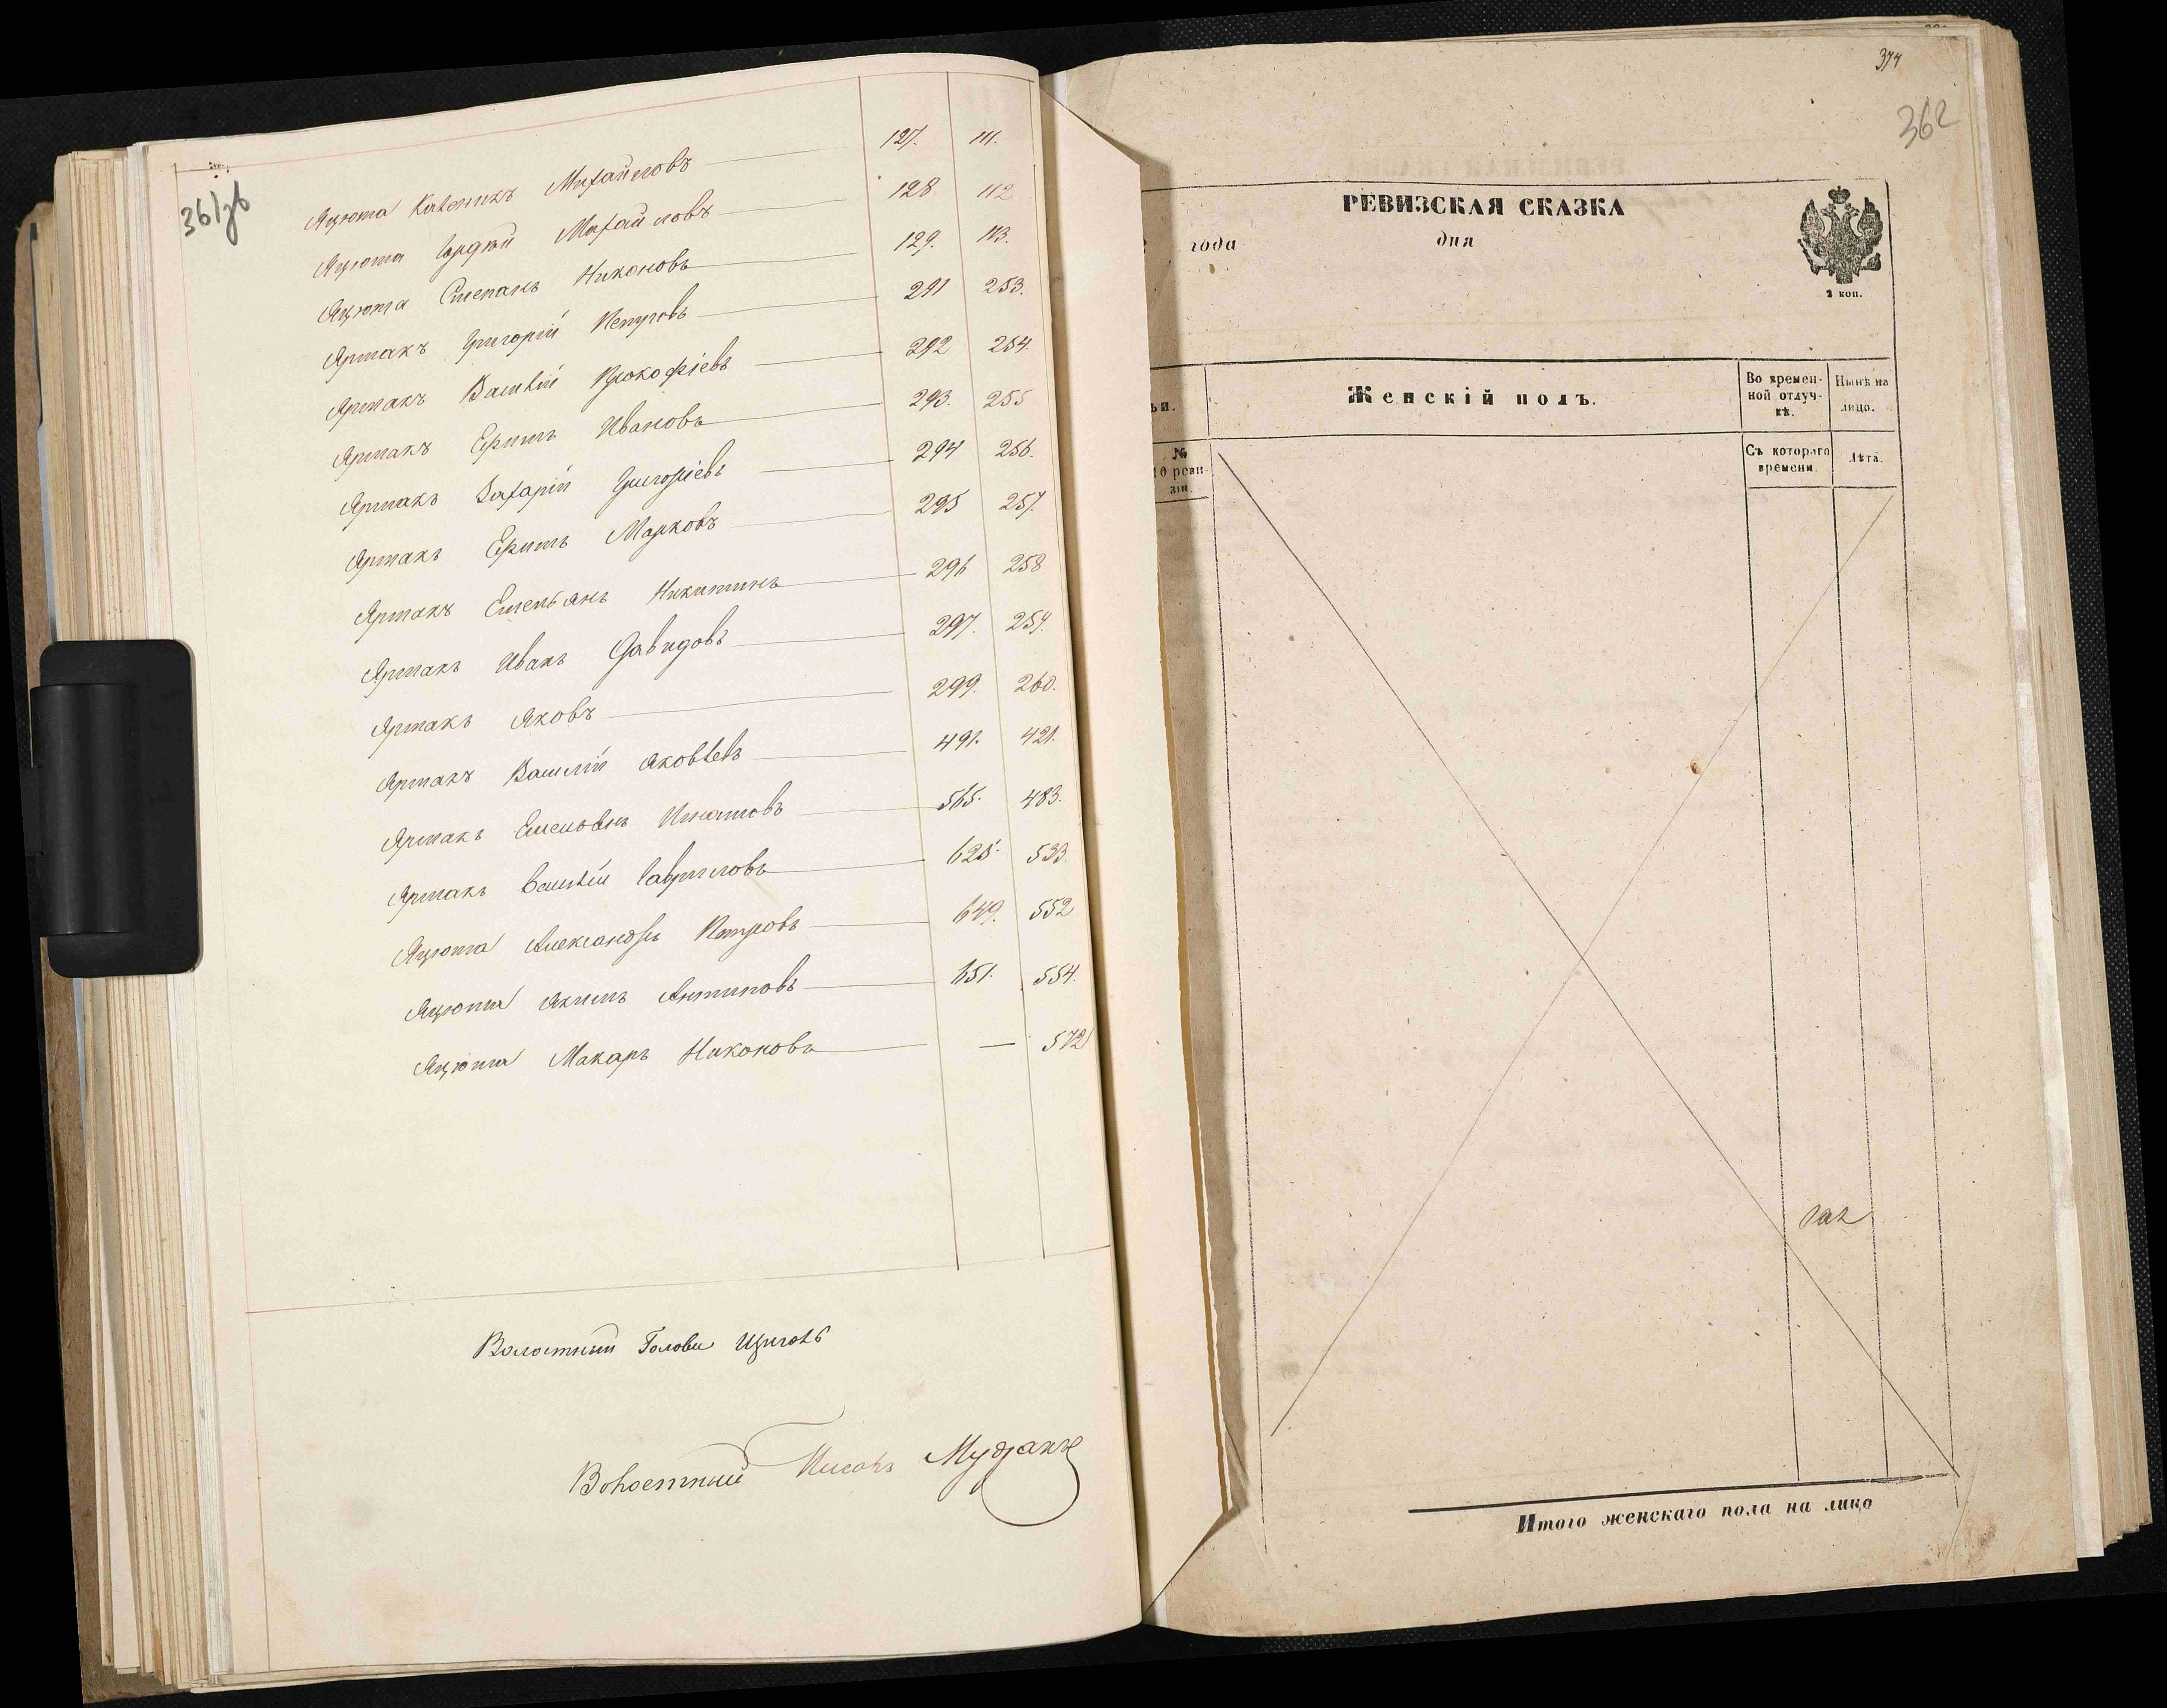 361зв
Яцюта Каленикъ Михайловъ 127. 111.
Яцюта Гордѣй Михайловъ 128 112
Яцюта Степанъ Никоновъ 129. 113.
Ярмакъ Григорій Петровъ 291 253.
Ярмакъ Василій Прокофіевъ 292 254.
Ярмакъ Ефимъ Ивановъ 293. 255
Ярмакъ Захарій Григоріевъ 294 256.
Ярмакъ Ефимъ Марковъ 295 257.
Ярмакъ Емельянъ Никитинъ 296 258
Ярмакъ Иванъ Давидовъ 297. 259.
Ярмакъ Яковъ 299. 260.
Ярмакъ Василій Яковлевъ 491. 421.
Ярмакъ Игнатовъ 565. 483.
Ярмакъ Гавриловъ 625. 533.
Яцюта Александръ Петровъ 649. 552
Яцюта Акимъ Антиповъ 651. 554.
Яцюта Макаръ Никоновъ — 572
Волостный Голова
Волостный Писарь
374
362
РЕВИЗСКАЯ СКАЗКА
года дня
2 коп.
ьи.
Женскій полъ.
Во времен-
ной отлуч-
кѣ.
Нынѣ на
лицо.
№
10 реви-
зіи.
Съ котораго
времени.
Лѣта.
Итого женскаго пола на лицо